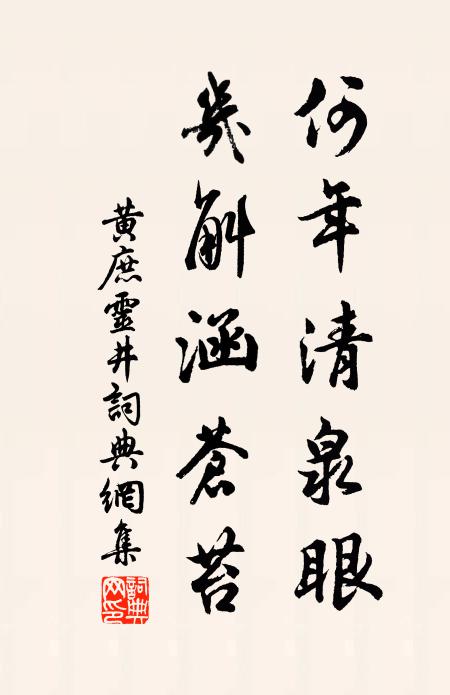 何年清泉眼
幾斛涵蒼苔
黃庶靈井詞典網集